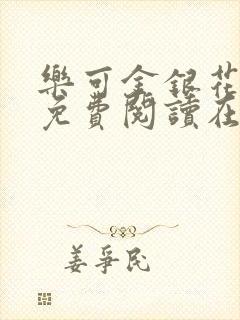 樂可金銀花
免費閱讀在
姜爭民